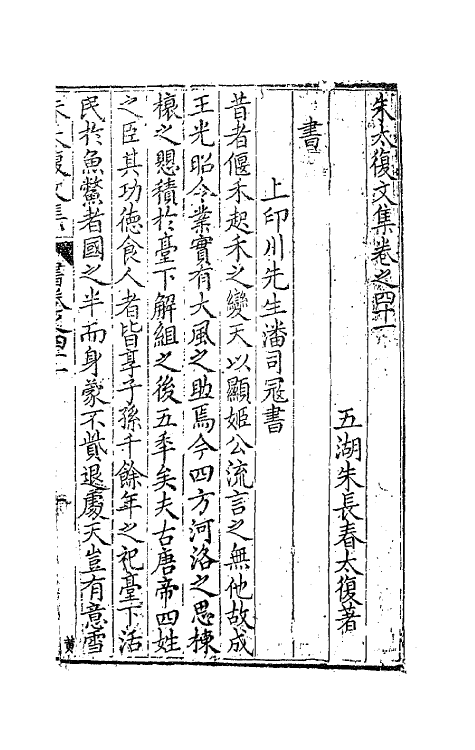 朱太復文集卷之四十一
五湖朱長春太復著
書
上印川先生潘司寇書
昔者偃禾起禾之變天以顯姬公流言之無他故成
王光昭令業實有大風之助焉今四方河洛之思棟
榱之懸積於臺下解組之後五季矣夫古唐帝四姓
之臣其功德食人者皆享子孫千餘年之祀臺下活
民於魚鱉者國之半而身蒙不貲退處天豈有意雪
朱太復文集 書卷之四十一
黄